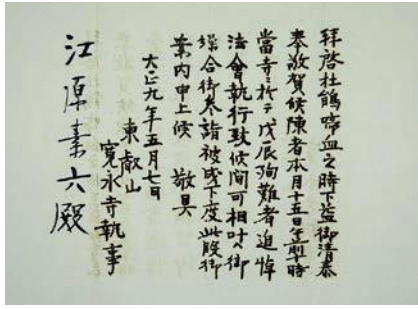 拝啓杜鵑啼血之時下益御清泰
奉敬賀候陳者本月十五日午前時
當寺ニ於テ戊辰殉難者追悼
法會執行致候間可相叶ハ御
繰合御参詣被成下度此段御
案内申上候 敬具
大正九年五月七日
東叡山
寛永寺執事
江原素六殿